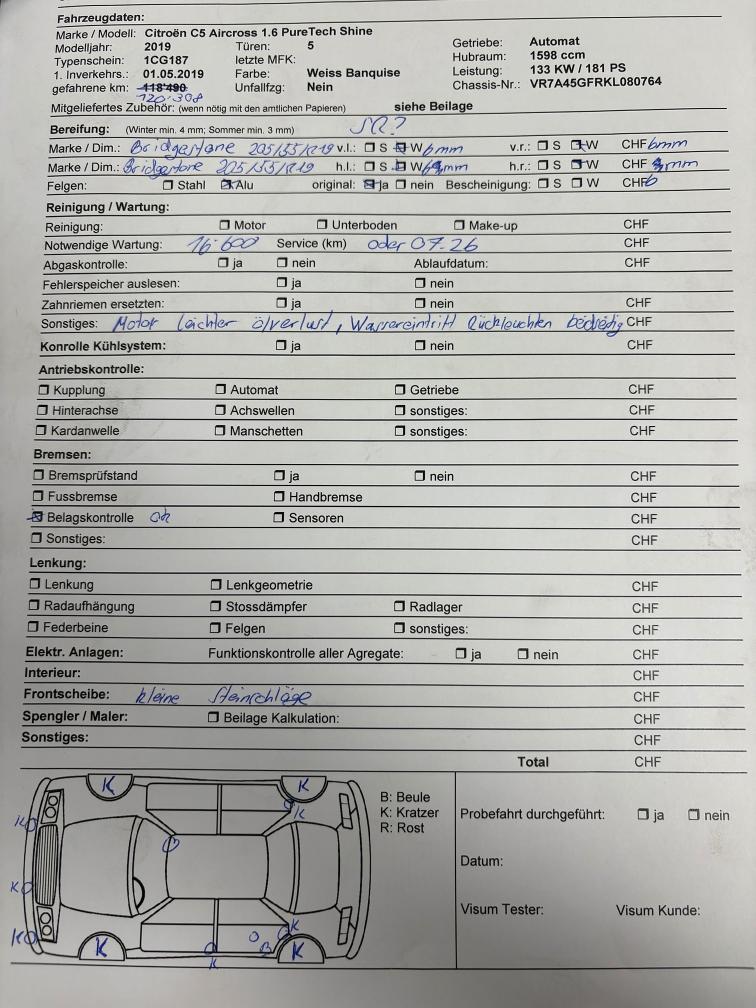 Fahrzeugdaten:
Marke / Modell: Citroën C5 Aircross 1.6 PureTech Shine
Modelljahr: 2019 Türen: 5 Getriebe: Automat
Typenschein: 1CG187 letzte MFK: Hubraum: 1598 ccm
1. Inverkehrs.: 01.05.2019 Farbe: Weiss Banquise Leistung: 133 KW / 181 PS
gefahrene km: 118'490 Unfallfzg: Nein Chassis-Nr.: VR7A45GFRKL080764
120'308
Mitgeliefertes Zubehör: (wenn nötig mit den amtlichen Papieren) siehe Beilage
Bereifung: (Winter min. 4 mm; Sommer min. 3 mm) SR?
Marke / Dim.: Bridgestone 205/55/R19 v.l.: S W 6mm v.r.: S W CHF 6mm
Marke / Dim.: Bridgestone 205/55/R19 h.l.: S W mm h.r.: S W CHF mm
Felgen: Stahl Alu original: ja nein Bescheinigung: S W CHF 6
Reinigung / Wartung:
Reinigung: Motor Unterboden Make-up CHF
Notwendige Wartung: 16'600 Service (km) oder 07.26 CHF
Abgaskontrolle: ja nein Ablaufdatum: CHF
Fehlerspeicher auslesen: ja nein
Zahnriemen ersetzten: ja nein CHF
Sonstiges: Motor leichter ölverlust, Wassereintritt Rückleuchten beidseitig CHF
Konrolle Kühlsystem: ja nein CHF
Antriebskontrolle:
Kupplung Automat Getriebe CHF
Hinterachse Achswellen sonstiges: CHF
Kardanwelle Manschetten sonstiges: CHF
Bremsen:
Bremsprüfstand ja nein CHF
Fussbremse Handbremse CHF
Belagskontrolle ok Sensoren CHF
Sonstiges: CHF
Lenkung:
Lenkung Lenkgeometrie CHF
Radaufhängung Stossdämpfer Radlager CHF
Federbeine Felgen sonstiges: CHF
Elektr. Anlagen: Funktionskontrolle aller Agregate: ja nein CHF
Interieur: CHF
Frontscheibe: kleine Steinschläge CHF
Spengler / Maler: Beilage Kalkulation: CHF
Sonstiges: CHF
Total CHF
K K
B: Beule
K: Kratzer
R: Rost
K K
K
K
K K K
B
K
Probefahrt durchgeführt: ja nein
Datum:
Visum Tester: Visum Kunde: